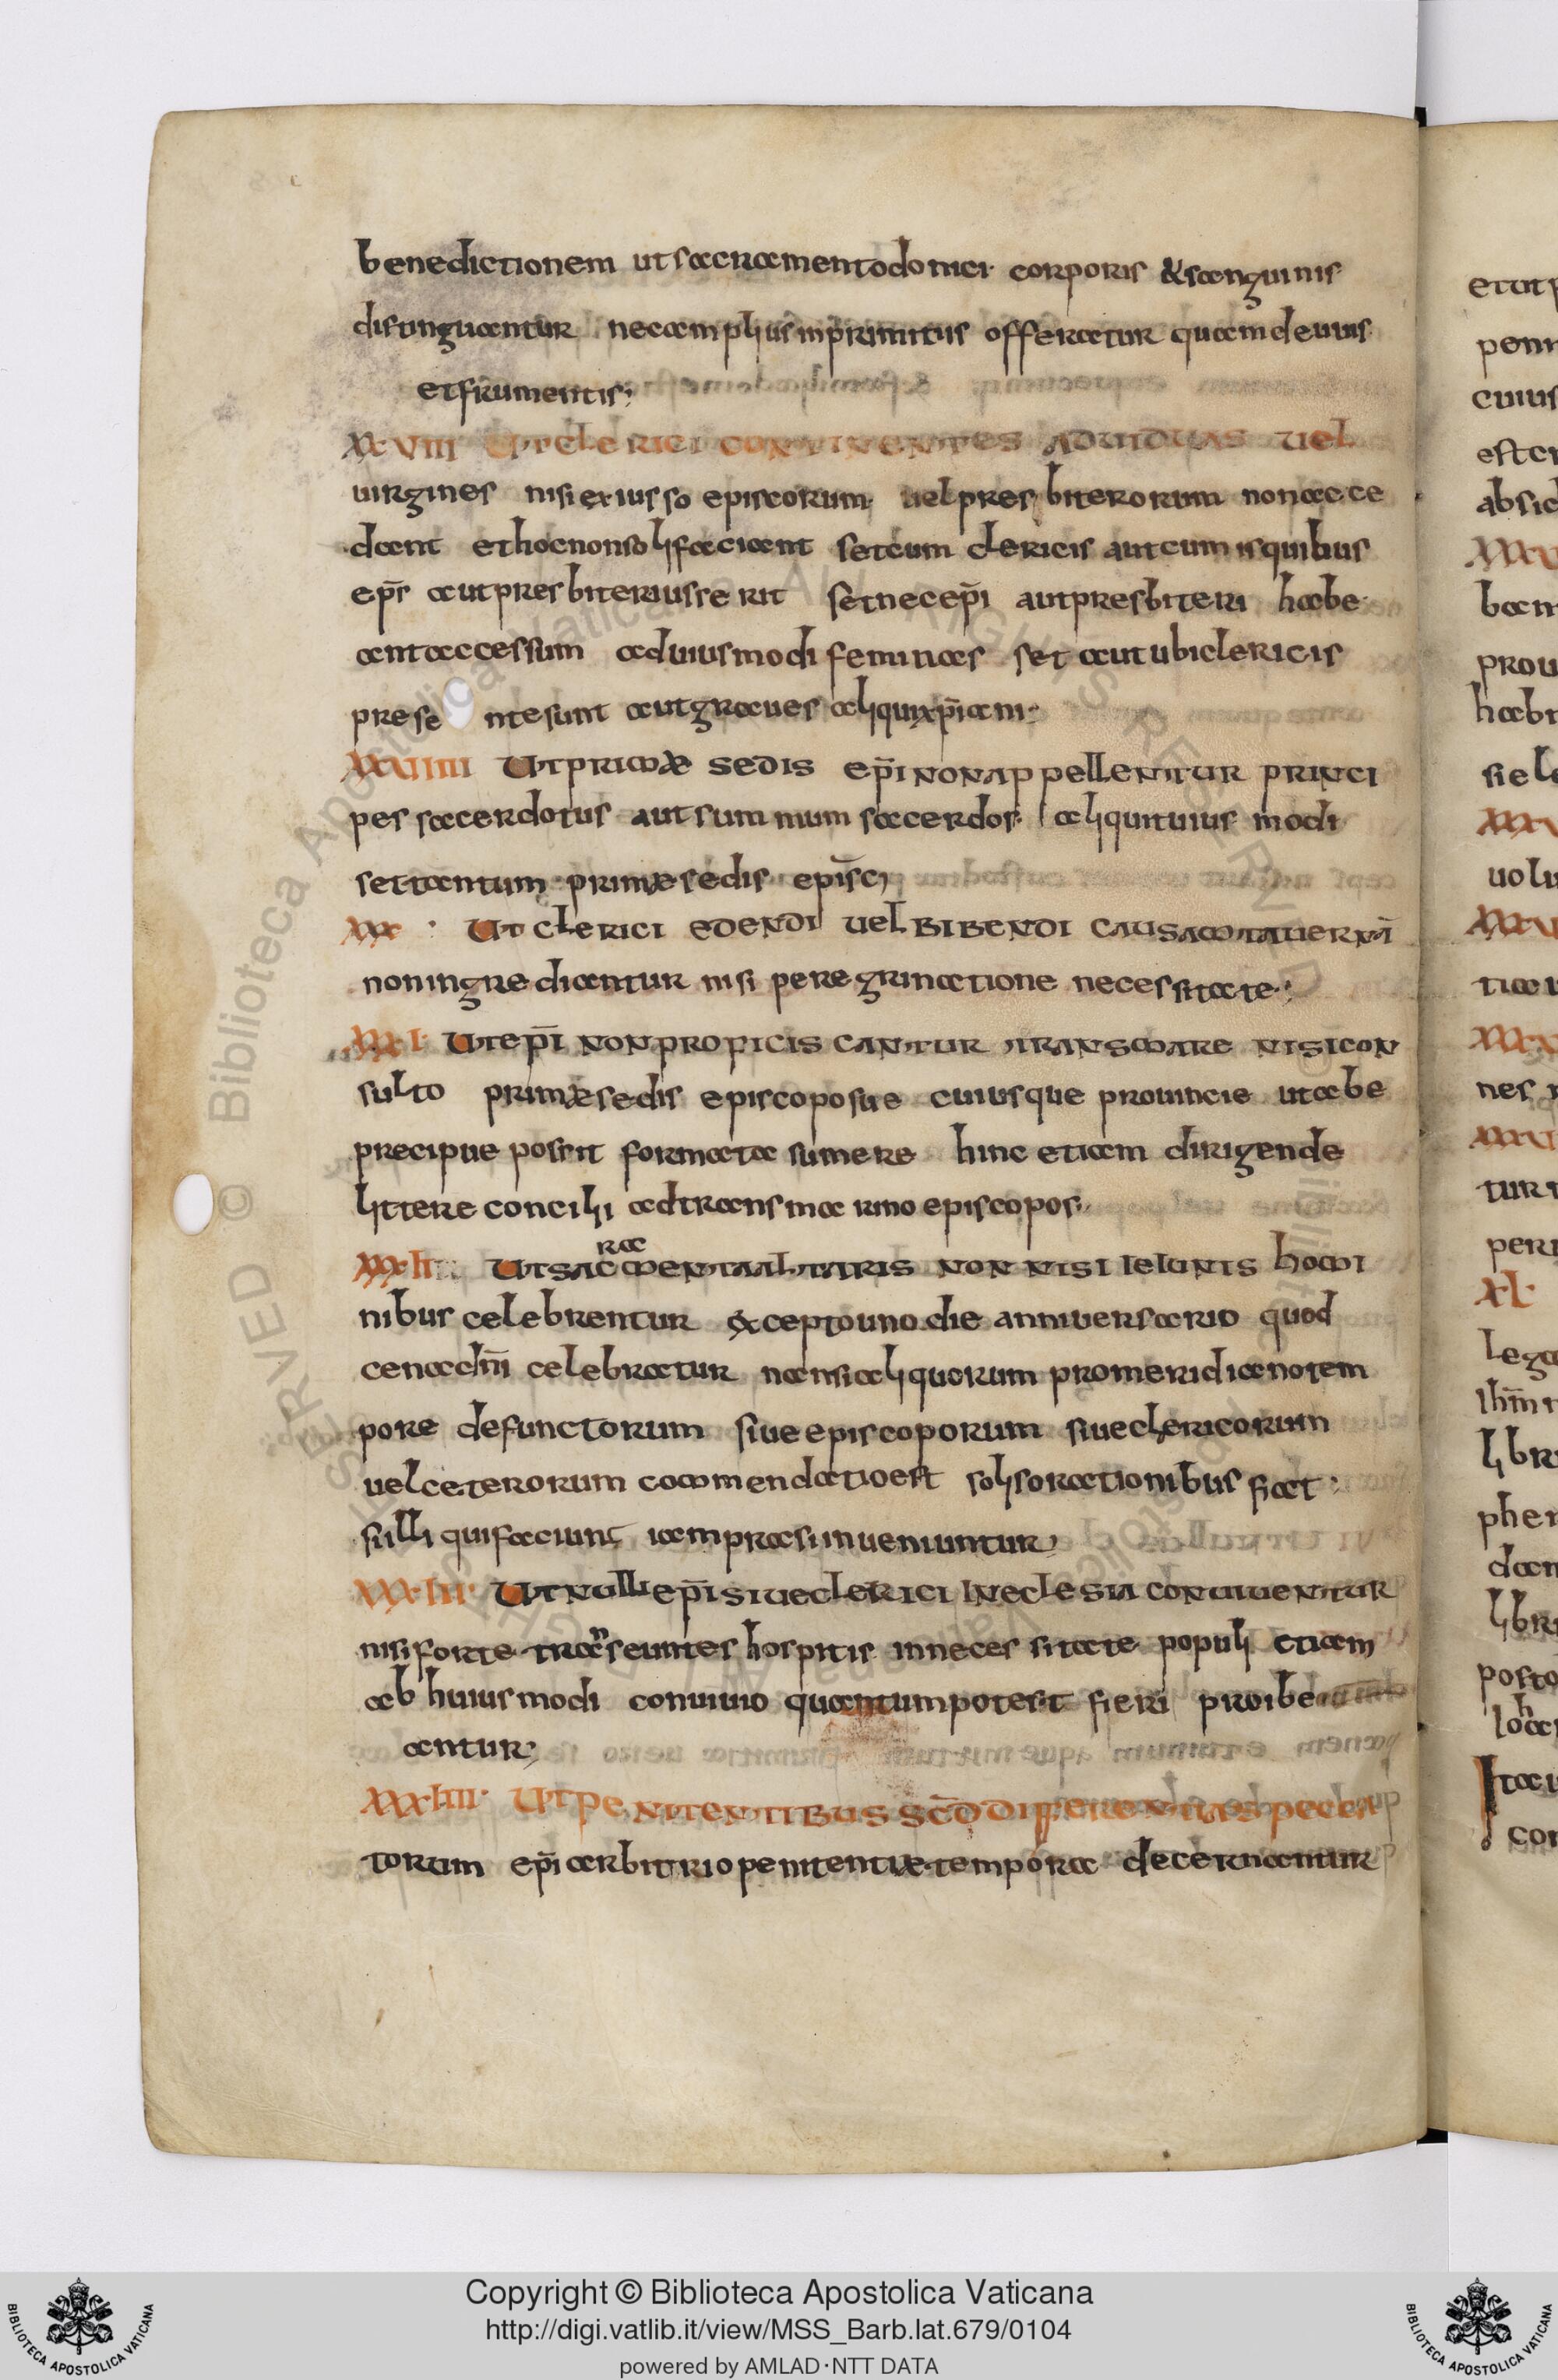 benedictionem ut sacramento domici corporis & sanguinis
distinguantur nec amplius inprimitiis offeratur quam de uuis
et frumentis;
XXVIII Ut clerici conuiuentes ad uiduas uel
uirgines nisi ex iusso episcorum uel presbiterorum non acce
dant et hoc non soli faciant set cum clericis aut cum is quibus
ep̄s aut presbiter iusserit set nec ep̄i aut presbiteri habe
ant accessum ad uiusmodi feminas set aut ubi clericis
prese ntes sunt aut graues aliqui xp̄iani;
XXVIIII Ut primæ sedis ep̄i non appellentur princi
pes sacerdotus aut summum sacerdos aliquit uius modi
set tantum primæ sedis epīsci
XXX Ut clerici edendi uel bibendi causa in tauernā
non ingrediantur nisi peregrinatione necessitate;
XXXI Ut ep̄i non proficiscantur transmare nisi con
sulto primæ sedis episcopo sue cuiusque prouincie ut abe
precipue possit formata sumere hinc etiam dirigende
littere concilii ad transmarino episcopos
ra
XXXII Ut sacmenta altaris non nisi ieiunis homi
nibus celebrentur excepto uno die anniuersario quod
cena dn̄i celebratur nansi aliquorum promeridiano tem
pore defunctorum siue episcoporum siue clericorum
uel ceterorum commendatio est solis orationibus fiat
si illi qui faciunt iam pransi inueniuntur
XXXIII Ut nulli ep̄i siue clerici in eclesia conuiuentur
nisi forte transeuntes hospitis in necessitate populi etiam
ab huiusmodi conuiuio quantum potest fieri proibe
antur;
XXXIIII Ut penitentibus sc̄d differentias pecca
torum ep̄i arbitrio penitentiæ tempora decernantur
Copyright © Biblioteca Apostolica Vaticana
http://digi.vatlib.it/view/MSS_Barb.lat.679/0104
powered by AMLAD·NTT DATA
BIBLIOTECA APOSTOLICA VATICANA
BIBLIOTECA APOSTOLICA VATICANA